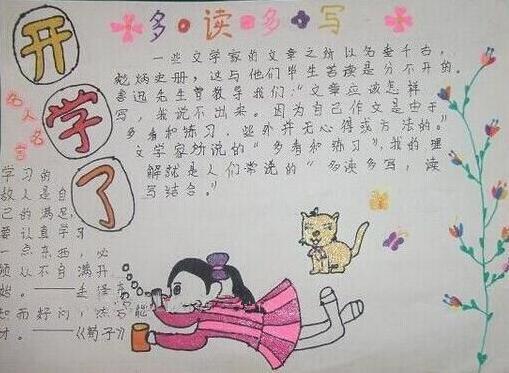 开
学
了
多读多写
一些文学家的文章之所以名垂千古,
彪炳史册,这与他们毕生苦读是分不开的。
鲁迅先生曾教导我们:"文章应该怎样
写,我说不出来。因为自己作文是由于
多看和练习,此外并无心得或方法的。"
文学家所说的"多看和练习",我的理
解就是人们常说的"多读多写,读
写结合。"
名人名言
学习的
敌人是自
己的满足,
要认真学习
一点东西,必
须从不自满开
始。——毛泽东
知而好问,然后能
才。——《荀子》